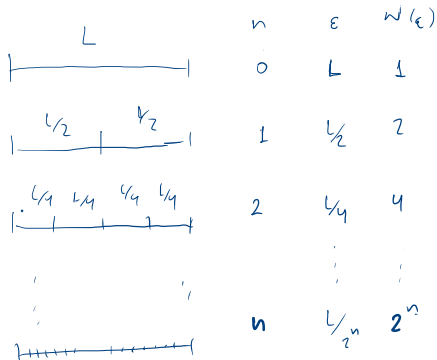 L n ε N(ε)
0 L 1
L/2 L/2 1 L/2 2
L/4 L/4 L/4 L/4 2 L/4 4
n L/2ⁿ 2ⁿ